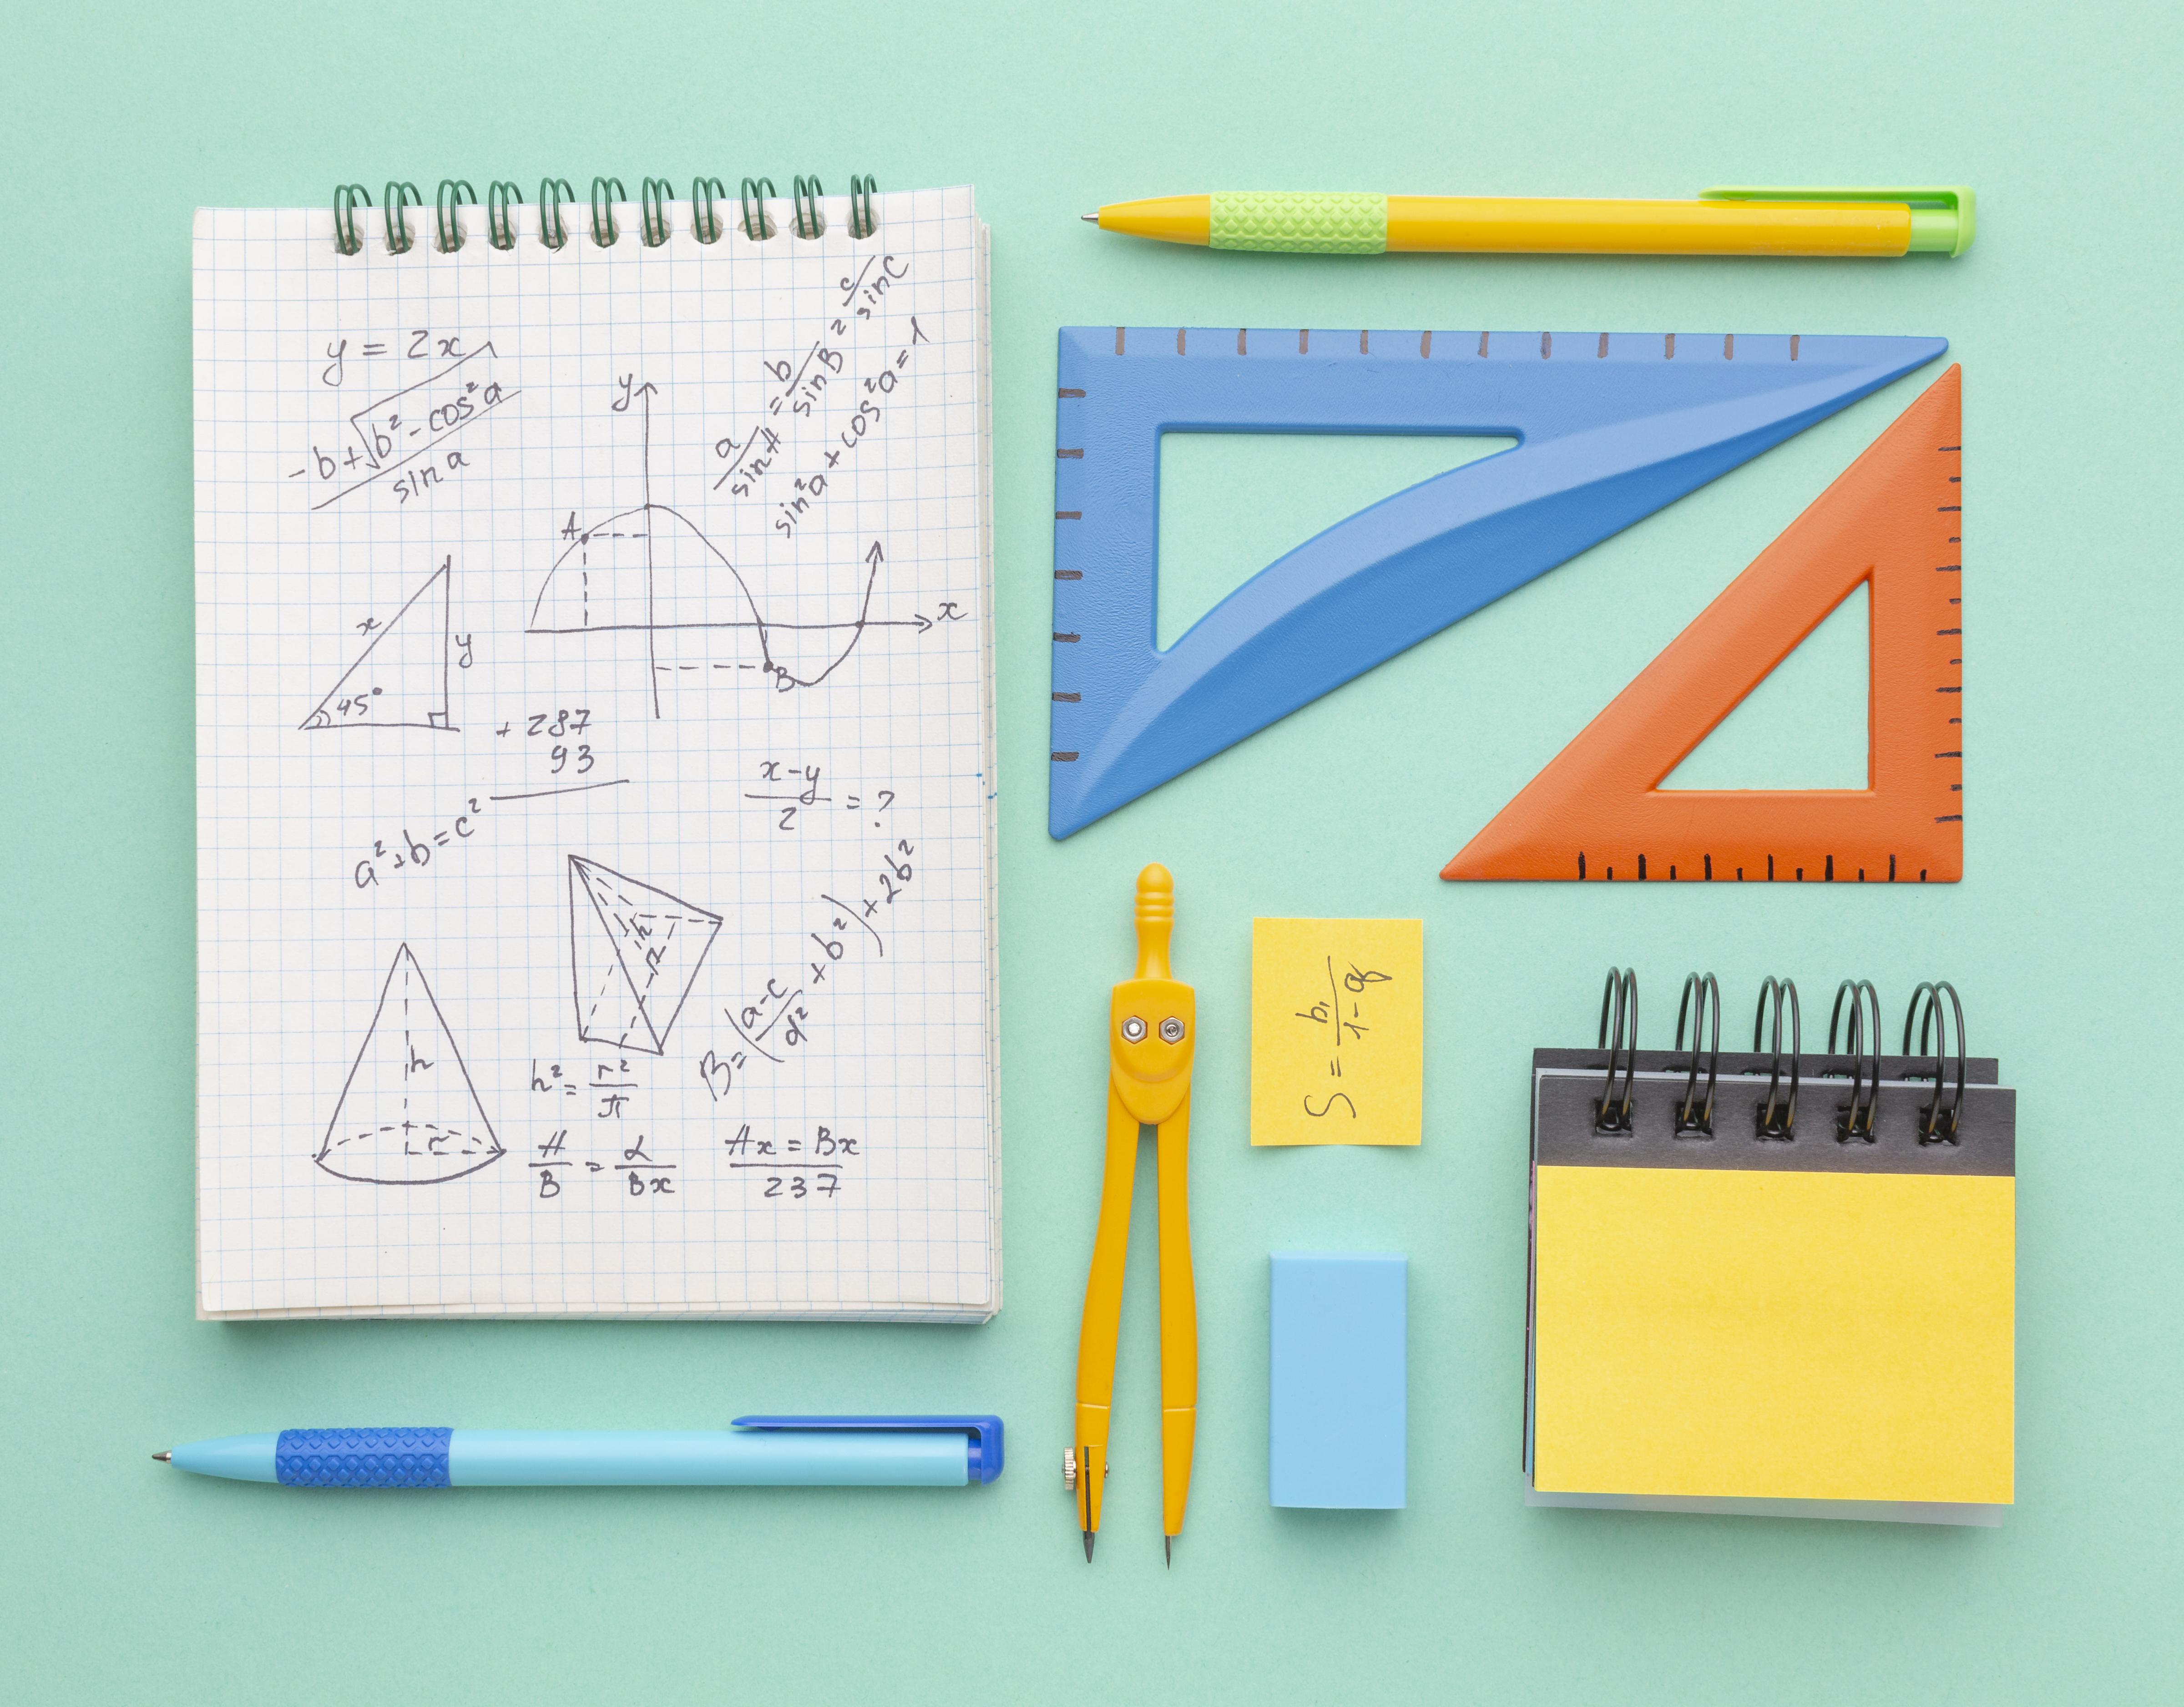 y = 2x
-b+√(b²-cos²a)/sin a
a/sin A = b/sin B = c/sin C
sin²a + cos²a = 1
y
A
x
B
x
y
45°
+ 287
93
x-y/2 = ?
a²+b=c²
h
h
r
B=(a-c/d² + b²)+2b²
h² = r²/π
A/B = L/Bx
Ax = Bx/237
S = b₁/1-q